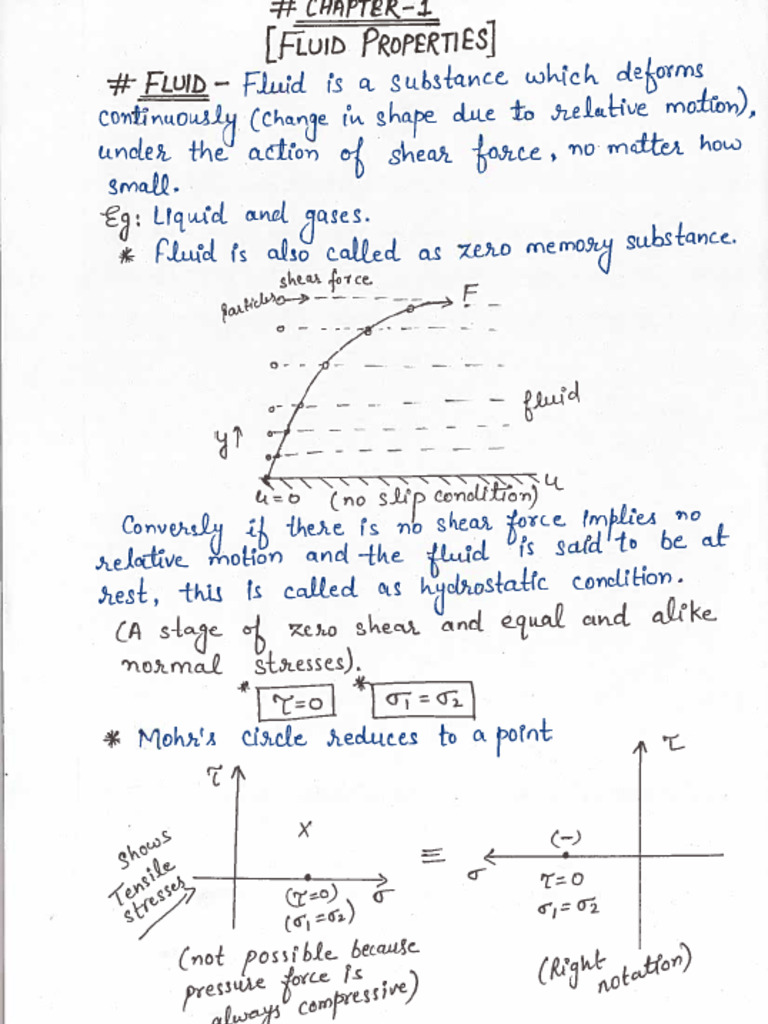 # CHAPTER-1
[FLUID PROPERTIES]
# FLUID - Fluid is a substance which deforms
continuously (change in shape due to relative motion),
under the action of shear force, no matter how
small.
Eg: Liquid and gases.
* Fluid is also called as zero memory substance.
shear force
particles
F
fluid
y↑
u=0 (no slip condition) u
Conversly if there is no shear force implies no
relative motion and the fluid is said to be at
rest, this is called as hydrostatic condition.
(A stage of zero shear and equal and alike
normal stresses).
* τ=0 * σ1 = σ2
* Mohr's circle reduces to a point
τ
τ
x
(-)
Shows
Tensile
stresses
≡
σ
σ
(τ=0)
(σ1=σ2)
τ=0
σ1=σ2
(not possible because
pressure force is
always compressive)
(Right
notation)